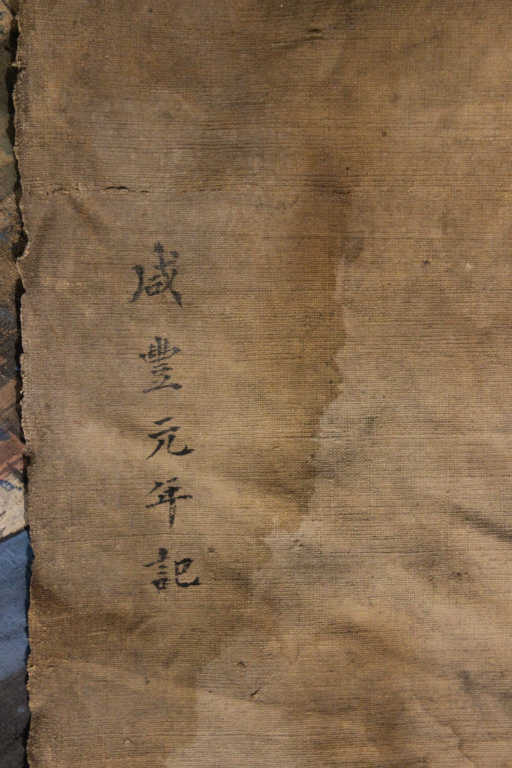 咸豐元年記